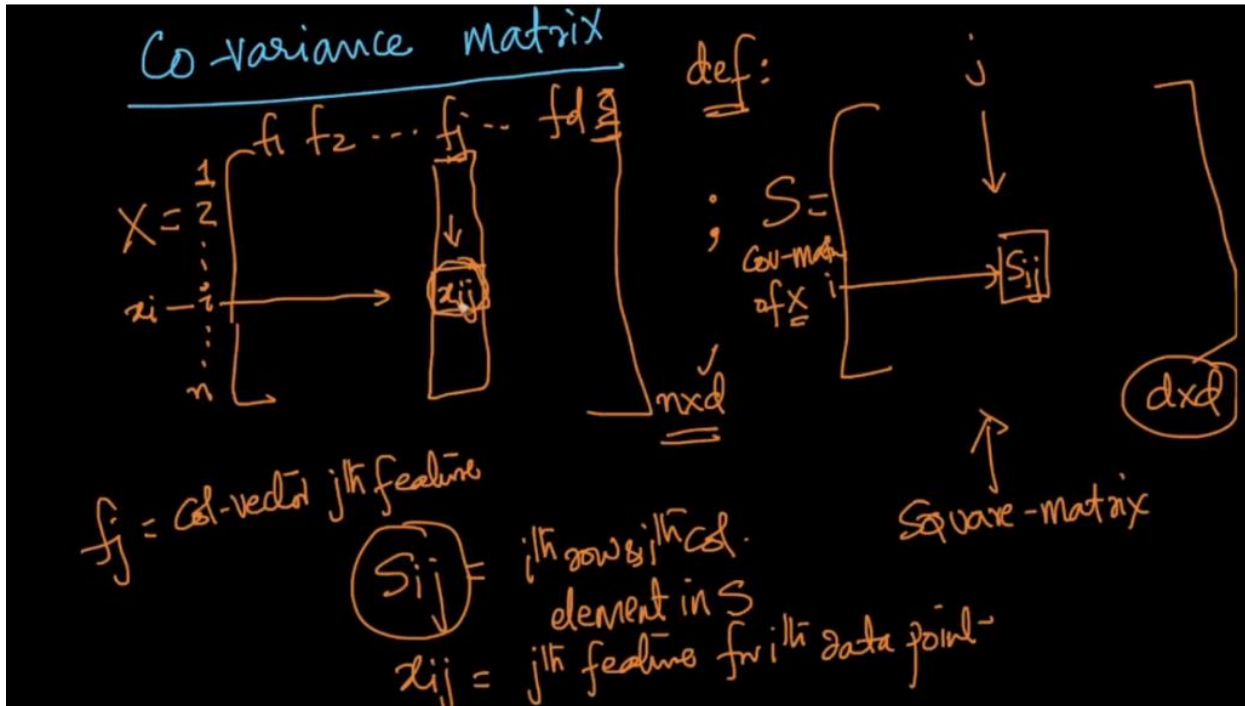 Co-variance matrix
def:
f1 f2 ... fj ... fd
j
1
X = 2
xi — i
xij
n
nxd
; S =
Cov-mat
of X
i
Sij
dxd
Square-matrix
fj = Col-vector jth feature
Sij = ith row & jth col.
element in S
xij = jth feature for ith data point